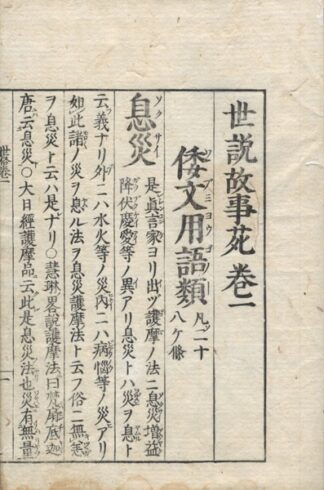 世説故事苑巻二
倭文用語類 凡二十八ケ條
息災 是眞言家ヨリ出ヅ護摩ノ法ニ息災増益
降伏慶愛等ノ異アリ息災トハ災ヲ息ト
云義ナリ外ニハ水火等ノ災内ニハ病惱等ノ災アリ
如此諸ノ災ヲ息ル法ヲ息災護摩法ト云フ俗ニ無恙
ヲ息災ト云ハ是ナリ○慧琳畧説護摩法曰梵扇底迦
唐云息災○大日經護摩品云此是息災法也災有無量